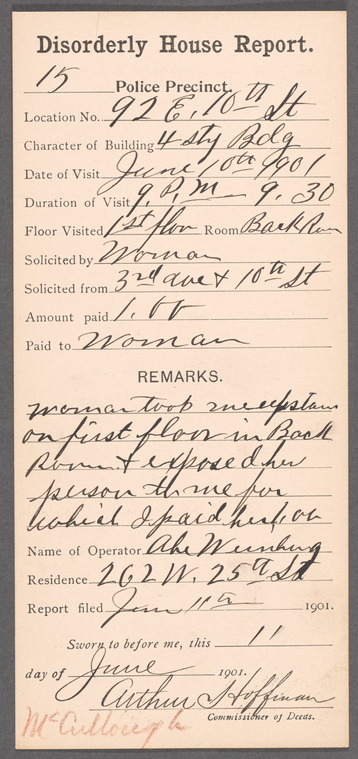 Disorderly House Report.
15 Police Precinct.
Location No. 92 E. 10th St
Character of Building 4 sty Bdg
Date of Visit June 10th 1901
Duration of Visit 9. P.M — 9. 30
Floor Visited 1st floor Room Back Room
Solicited by Woman
Solicited from 3rd ave & 10th St
Amount paid 1.00
Paid to Woman
REMARKS.
woman took me upstairs
on first floor in Back
Room & exposed her
person to me for
which I paid her 1.00
Name of Operator Abe Weinburg
Residence 262 W. 25th St
Report filed June 11th 1901.
Sworn to before me, this 11
day of June 1901.
Arthur S Hoffman
Commissioner of Deeds.
McCullough